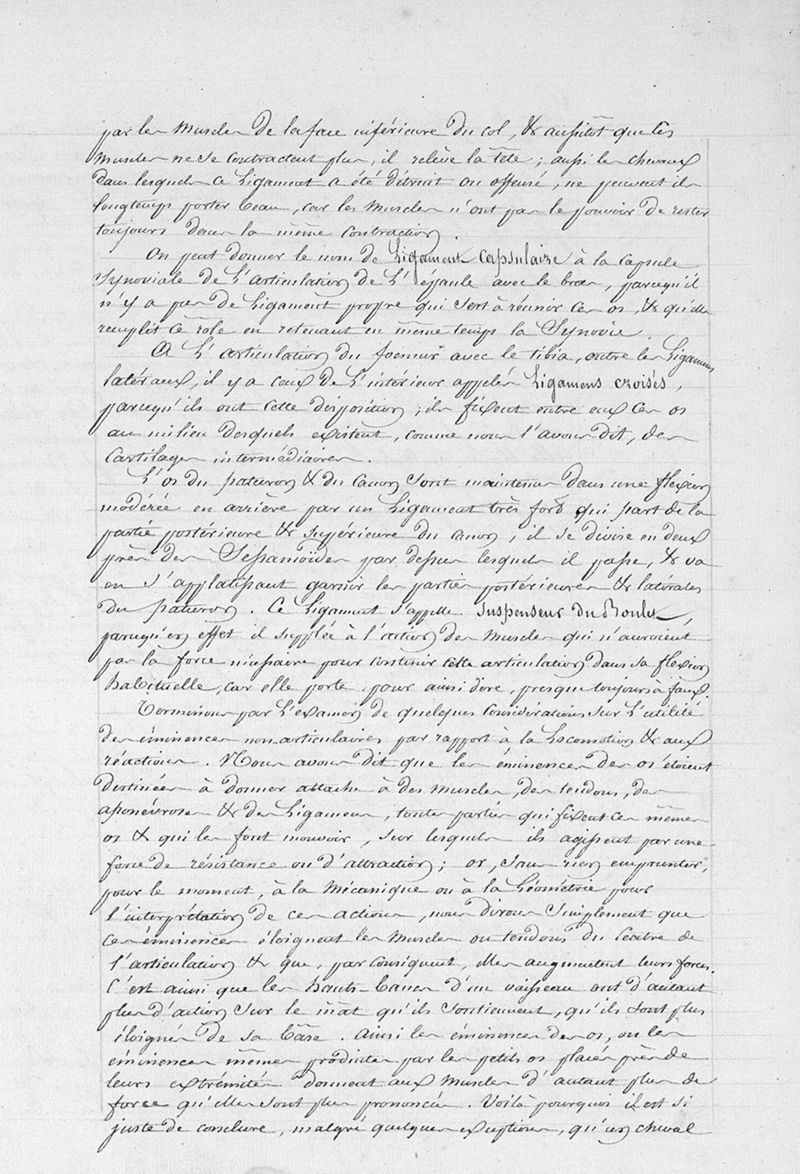 par les Muscles de la face inférieure du col, & aussitôt que les
Muscles ne se contractent plus, il relève la tête ; aussi les chevaux
dans lesquels ce Ligament a été détruit ou offensé, ne peuvent ils
longtemps porter beau, car les Muscles n'ont pas le pouvoir de rester
toujours dans la même contraction.
On peut donner le nom de Ligament capsulaire à la capsule
Synoviale de l'articulation de l'épaule avec le bras, parcequ'il
n'y a pas de Ligament propre qui sert à réunir ces os, & qu'elle
remplit ce rôle en retenant en même temps la Synovie.
A l'articulation du foemur avec le tibia, outre les Ligamens
latéraux, il y a ceux de l'intérieur appelés Ligamens croisés,
parcequ'ils ont cette disposition ; ils fixent entre eux ces os
au milieu desquels existent, comme nous l'avons dit, des
Cartilages intermédiaires.
L'os du paturon & du canon sont maintenus dans une flexion
modérée en arrière par un Ligament très fort qui part de la
partie postérieure & supérieure du canon ; il se divise en deux
près des Sesamoïdes par dessus lesquels il passe, & va
en s'applatissant garnir les parties postérieures & latérales
du paturon. Ce Ligament s'appelle Suspenseur du Boulet,
parcequ'en effet il supplée à l'action des muscles qui n'auroient
pas la force nécessaire pour contenir cette articulation dans sa flexion
habituelle, car elle porte, pour ainsi dire, presque toujours à faux.
Terminons par l'examen de quelques considérations sur l'utilité
des éminences non-articulaires par rapport à la Locomotion & aux
réactions. Nous avons dit que les éminences des os étoient
destinées à donner attache à des Muscles, des tendons, des
aponévroses & des Ligamens, toutes parties qui fixent ces mêmes
os & qui les font mouvoir, sur lesquels ils agissent par une
force de résistance ou d'attraction ; or, sans rien emprunter,
pour le moment, à la Mécanique ou à la Géométrie pour
l'interprétation de ces actions, nous dirons simplement que
ces éminences éloignent les Muscles ou tendons du Centre de
l'articulation & que, par conséquent, elles augmentent leurs forces.
C'est ainsi que les hauts-bancs d'un vaisseau ont d'autant
plus d'action sur le mât qu'ils soutiennent, qu'ils sont plus
éloignés de sa base. Ainsi les éminences des os, ou les
éminences mêmes produites par les petits os placés près de
leurs extrémités donnent aux Muscles d'autant plus de
force qu'elles sont plus prononcées. Voilà pourquoi il est si
juste de conclure, malgré quelques exceptions, qu'un cheval